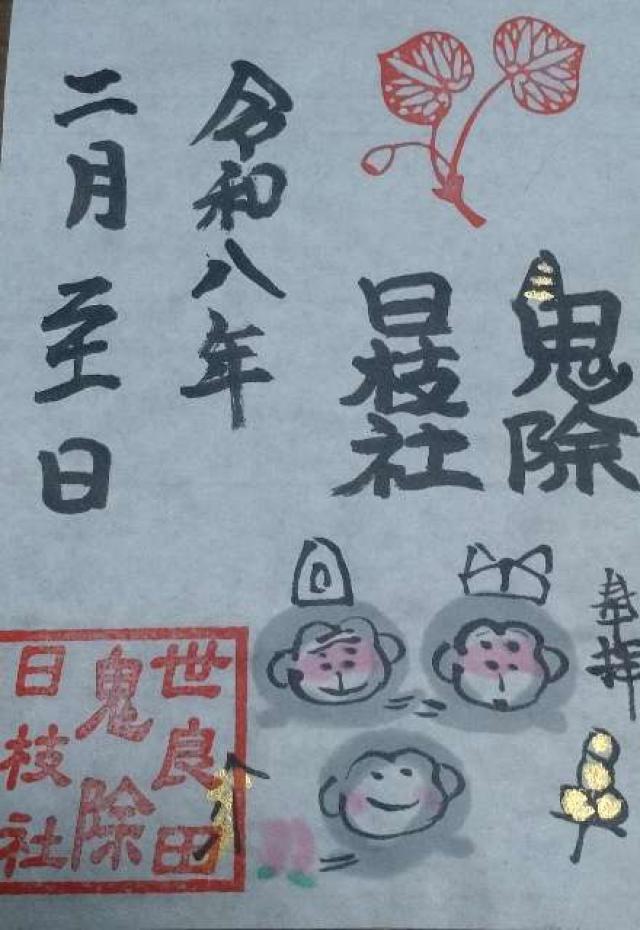 奉拝
鬼除
日枝社
令和八年
二月 至日
世良田
鬼除
日枝社